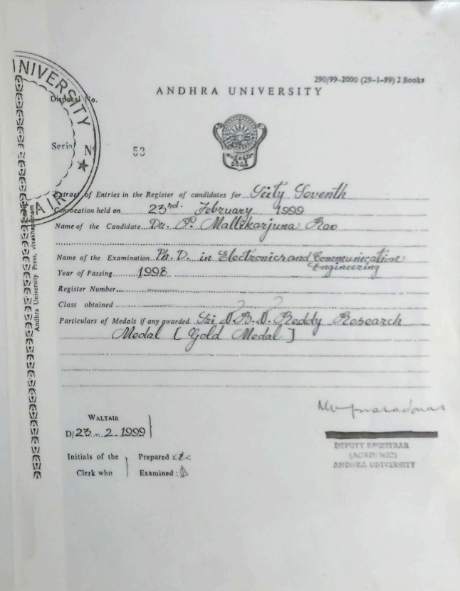 290/99-2000 (29-1-99) 2 Books
ANDHRA UNIVERSITY
UNIVERSITY
Disposal No.
Serial N
53
Extract of Entries in the Register of candidates for Sixty Seventh
Convocation held on 23rd February 1999
Name of the Candidate Dr. P. Mallikarjuna Rao
Name of the Examination Ph.D. in Electronics and Communication
Engineering
Year of Passing 1998
Register Number
Class obtained
Particulars of Medals if any awarded Sri D.B.D. Reddy Research
Medal [Gold Medal]
WALTAIR
D/23-2-1999
Initials of the Prepared
Clerk who Examined :
DEPUTY REGISTRAR
(ACADEMIC)
ANDHRA UNIVERSITY
Andhra University Press,